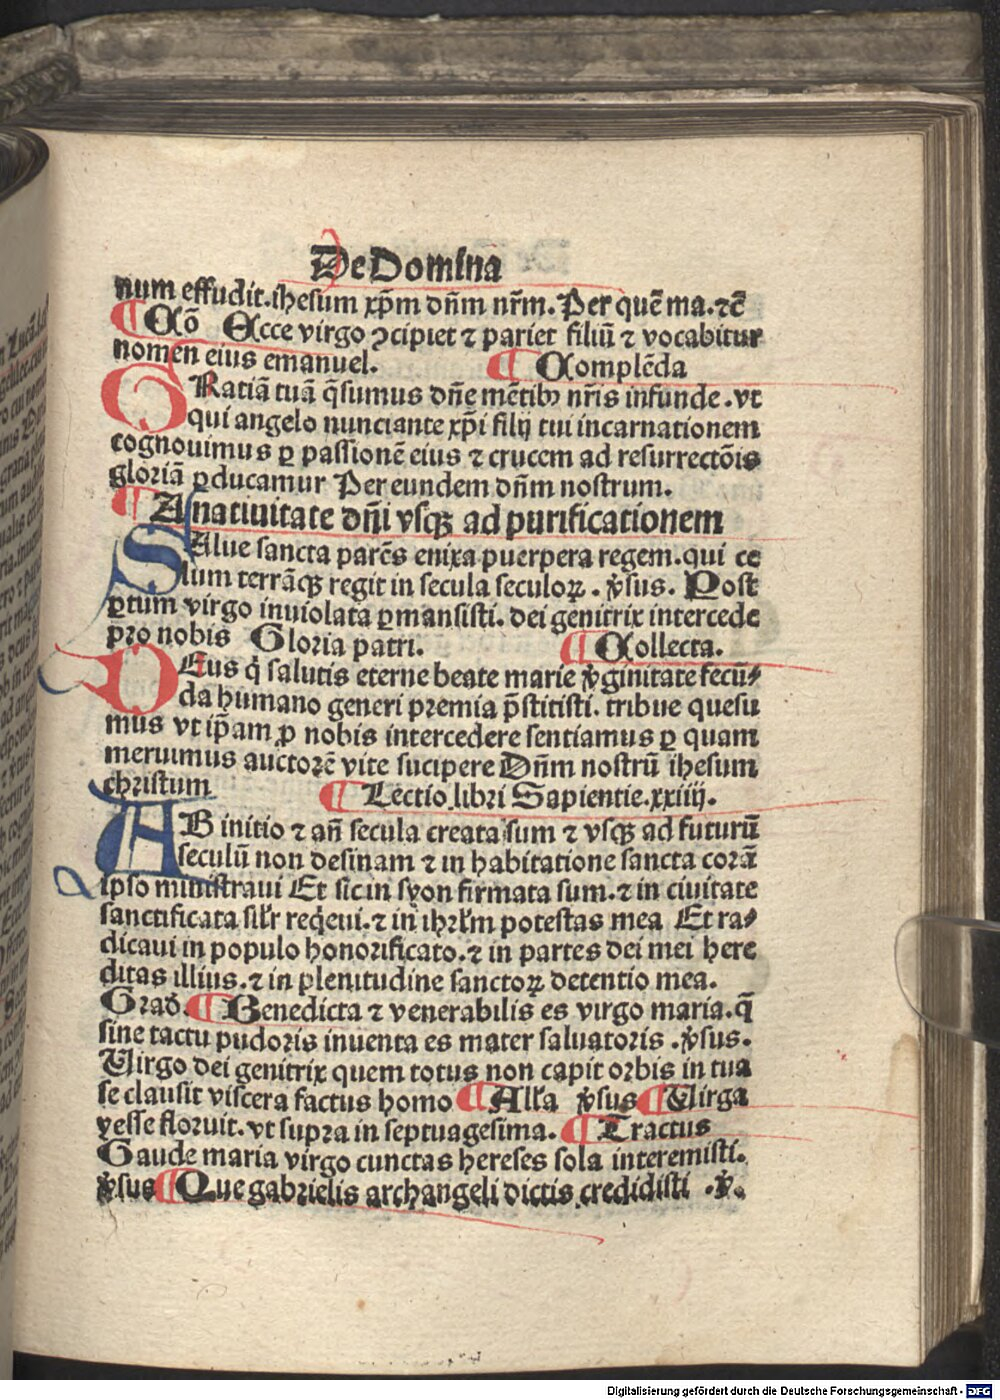 De Domina
num effudit. ihesum xp̄m dn̄m nr̄m. Per quē ma. ⁊cē
¶ Cō Ecce virgo ↄcipiet ⁊ pariet filiū ⁊ vocabitur
nomen eius emanuel. ¶ Complēda
GRatiā tuā q̄sumus dn̄e mētibꝫ nr̄is infunde. vt
qui angelo nunciante xp̄i filij tui incarnationem
cognouimus ꝑ passionē eius ⁊ crucem ad resurrectōis
gloriā ꝑducamur Per eundem dn̄m nostrum.
¶ A natiuitate dn̄i vsqꝫ ad purificationem
SAlue sancta parēs enixa puerpera regem. qui ce
lum terrāqꝫ regit in secula seculoꝝ. v̄sus. Post
ꝑtum virgo inuiolata ꝑmansisti. dei genitrix intercede
pro nobis Gloria patri. ¶ Collecta.
DEus q̇ salutis eterne beate marie v̄ginitate fecū⸗
da humano generi premia p̄stitisti. tribue quesu
mus vt ip̄am ꝓ nobis intercedere sentiamus ꝑ quam
meruimus auctorē vite sucipere Dn̄m nostrū ihesum
christum ¶ Lectio libri Sapientie. xxiiij.
AB initio ⁊ an̄ secula creata sum ⁊ vsqꝫ ad futurū
seculū non desinam ⁊ in habitatione sancta corā
ipso ministraui Et sic in syon firmata sum. ⁊ in ciuitate
sanctificata silr̄ req̇eui. ⁊ in ihrlm̄ potestas mea Et ra⸗
dicaui in populo honorificato. ⁊ in partes dei mei here
ditas illius. ⁊ in plenitudine sanctoꝝ detentio mea.
Grad̄. ¶ Benedicta ⁊ venerabilis es virgo maria. q̄
sine tactu pudoris inuenta es mater saluatoris. v̄sus.
Virgo dei genitrix quem totus non capit orbis in tua
se clausit viscera factus homo ¶ All'a v̄sus ¶ Virga
yesse floruit. vt supra in septuagesima. ¶ Tractus
Gaude maria virgo cunctas hereses sola interemisti.
v̄sus ¶ Que gabrielis archangeli dictis credidisti. v̄.
Digitalisierung gefördert durch die Deutsche Forschungsgemeinschaft - DFG